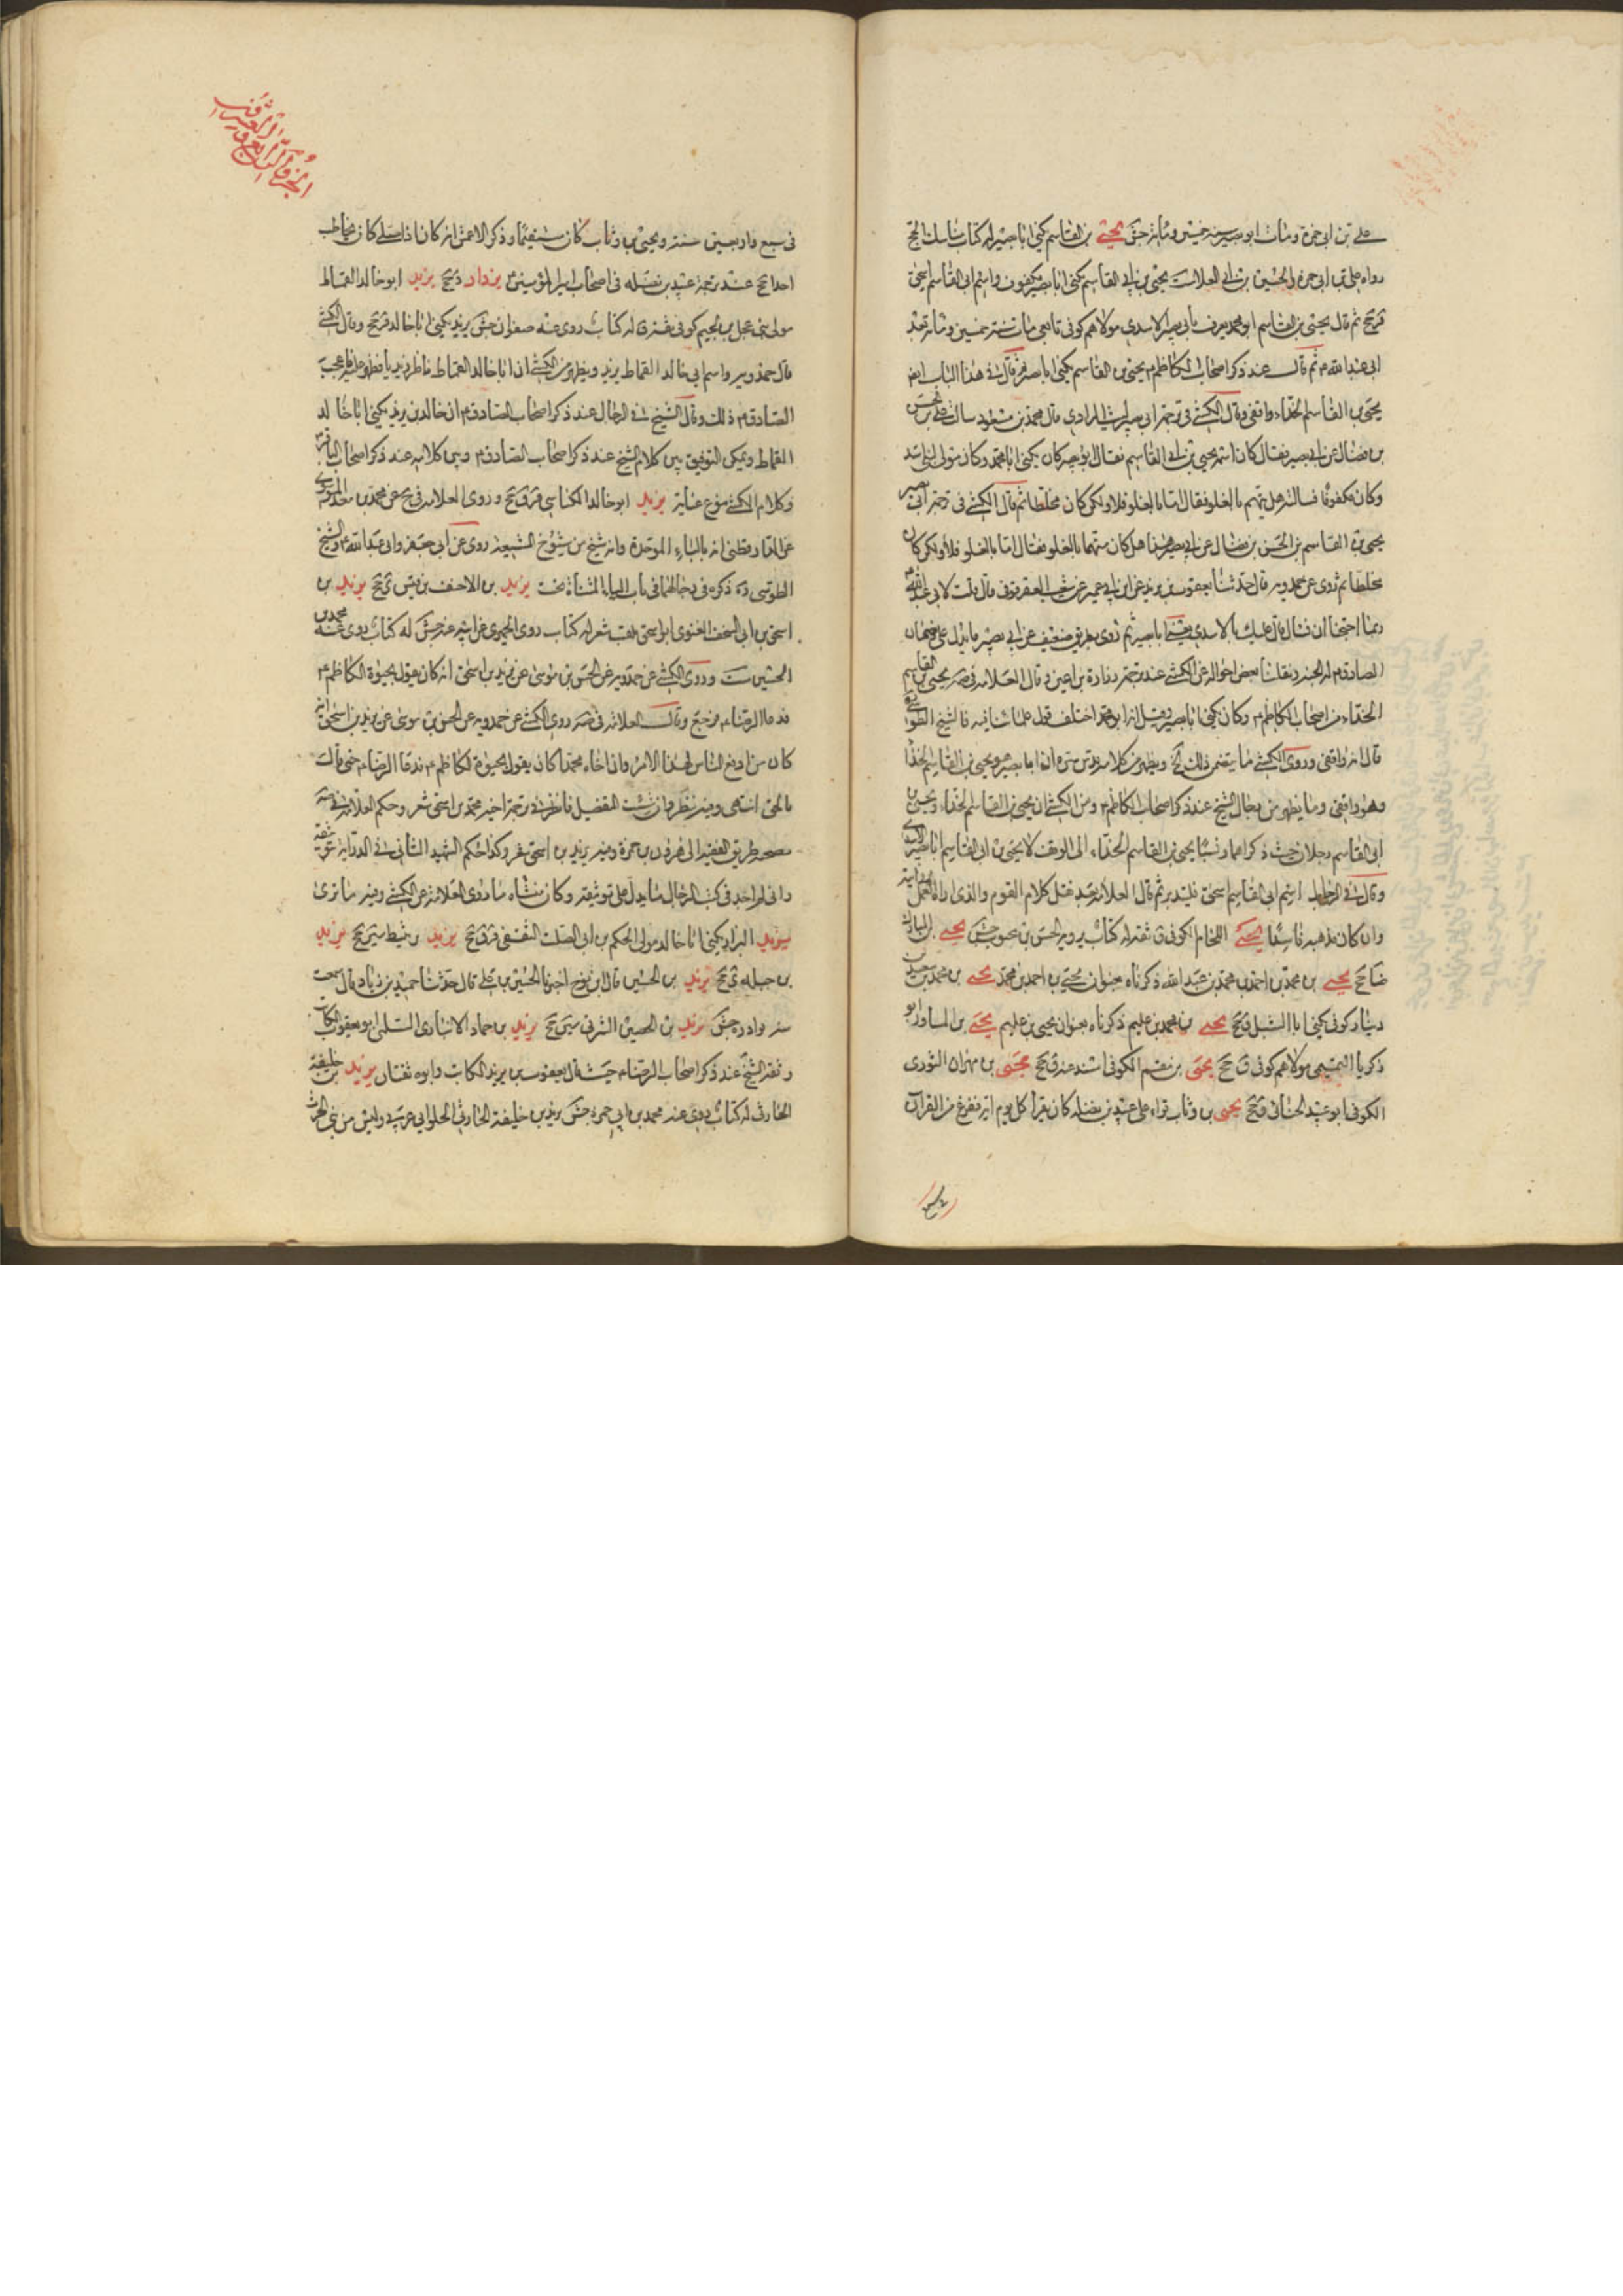 علي بن ابي حمزة ومات ابو بصير سنة خمسين ومأة جش يحيى بن القاسم يكنى ابا بصير له كتاب مناسك الحج
رواه علي بن ابي حمزة والحسين بن ابي العلا ست يحيى بن ابي القاسم يكنى ابا بصير مكفوف واسم ابي القاسم اسحق
قر جخ ثم قال يحيى بن القاسم ابو محمد يعرف بابي بصير الاسدي مولاهم كوفي تابعي مات سنة خمسين ومأة بعد
ابي عبد الله م ثم قال عند ذكر اصحاب الكاظم م يحيى بن القاسم يكنى ابا بصير ثم قال في هذا الباب ايض
يحيى بن القاسم الحذاء واقفي وقال الكشي في ترجمة ابي بصير ليث المرادي قال محمد بن مسعود سالت علي بن الحسن
بن فضال عن ابي بصير فقال كان اسمه يحيى بن ابي القاسم فقال ابو بصير كان يكنى ابا محمد وكان مولى لبني اسد
وكان مكفوفا فسالته هل يتهم بالغلو فقال اما الغلو فلا ولكن كان مخلطا ثم قال الكشي في ترجمة ابي بصير
يحيى بن القاسم بن الحسن بن فضال عن ابي بصير هذا هل كان متهما بالغلو فقال اما بالغلو فلا ولكن كان
مخلطا ثم روى عن حمدويه قال حدثنا يعقوب بن يزيد عن ابن ابي عمير عن شعيب العقرقوفي قال قلت لابي عبد الله م
ربما احتجنا ان نسال قال عليك بالاسدي يعني ابا بصير ثم روى بطريق ضعيف عن ابي بصير ما يدل على ضمان
الصادق م له الجنة ونقلنا بعض احواله عن الكشي عند ترجمة زرارة بن اعين وقال العلامة في صه يحيى بن القاسم
الحذاء من اصحاب الكاظم م وكان يكنى ابا بصير وقيل انه ابو محمد اختلف قول علمائنا فيه فالشيخ الطوسي
قال انه واقفي وروى الكشي ما يتضمن ذلك
وهو واقفي وما يظهر من رجال الشيخ عند ذكر اصحاب الكاظم م ومن الكشي ان يحيى بن القاسم الحذاء ويحيى بن
ابي القاسم رجلان حيث ذكراهما ونسبا يحيى بن القاسم الحذاء الى الوقف لا يحيى بن ابي القاسم ابا بصير الاسدي
وقال اسم ابي القاسم اسحق فليتدبر ثم قال العلامة بعد نقل كلام القوم والذي اراه العمل بروايته
وان كان مذهبه فاسدا يحيى اللحام الكوفي ق ثقة له كتاب يرويه الحسن بن محبوب جش يحيى بن المبارك
ضا جخ يحيى بن محمد بن احمد بن محمد بن عبد الله ذكرناه بعنوان يحيى بن احمد بن محمد يحيى بن محمد بن سعيد بن
دينار كوفي يكنى ابا الشبل ق جخ يحيى بن محمد بن عليم ذكرناه بعنوان يحيى بن عليم يحيى بن المساور ابو
زكريا التميمي مولاهم كوفي ق جخ يحيى بن مقسم الكوفي اسند عنه ق جخ يحيى بن مهران الثوري
الكوفي ابو عبيد الحناني ق جخ يحيى بن وثاب قراء على عبيد بن نضلة كان يقرا كل يوم اية ففرغ من القران
في سبع واربعين سنة ويحيى بن وثاب كان مستقيما وذكر الاعمش انه كان اذا صلى كان يخاطب
احدا جخ عند ترجمة عبيد بن نضله في اصحاب امير المؤمنين م يزداد دي جخ يزيد ابو خالد القماط
مولى بني عجل بن لجيم كوفي ثقة ق له كتاب روى عنه صفوان جش يزيد يكنى ابا خالد ق جخ وقال الكشي
قال حمدويه واسم ابي خالد القماط يزيد ويظهر من الكشي ان ابا خالد القماط ناظر زيديا فظهر عليه فاعجب
الصادق م ذلك وقال الشيخ في الرجال عند ذكر اصحاب الصادق م ان خالد بن يزيد يكنى ابا خالد
القماط ويمكن التوفيق بين كلام الشيخ عند ذكر اصحاب الصادق م وبين كلامه عند ذكر اصحاب الباقر م
وكلام الكشي مع يزيد ابو خالد الكناسي قر ق جخ وروى العلامة في ضح عن محمد بن معد الموسوي
عن الدارقطني انه بالباء الموحدة وانه شيخ من شيوخ الشيعة روى عن ابي جعفر وابي عبد الله م والشيخ
الطوسي ره ذكره في رجالهما في باب الياء المثناة تحت يزيد بن الاحنف بن قيس ى جخ يزيد بن
اسحق بن ابي السخف الغنوي ابو اسحق يلقب شعر له كتاب روى الحميري عن ابيه عنه جش له كتاب روى عنه محمد بن
الحسين ست وروى الكشي عن حمدويه عن الحسن بن موسى عن يزيد بن اسحق انه كان يقول بحيوة الكاظم م
فدعا الرضا م فرجع وقال العلامة في صه روى الكشي عن حمدويه عن الحسن بن موسى عن يزيد بن اسحق انه
كان من ادفع الناس لهذا الامر وان اخاه محمدا كان يقول بحيوة الكاظم م فدعا الرضا م حتى قال
بالحق انتهى وفيه نظر وان شئت التفصيل فانظر في ترجمة اخيه محمد بن اسحق شعر وحكم العلامة في صه
بصحة طريق الفقيه الى هرون بن حمزة وفيه يزيد بن اسحق شعر وكذا حكم الشهيد الثاني في الدراية بتوثيقه
واني لم اجد في كتب الرجال ما يدل على توثيقه وكان منشاه ما روى العلامة عن الكشي وفيه ما ترى
يزيد البزاز يكنى ابا خالد مولى الحكم بن ابي الصلت الثقفي قر ق جخ يزيد بن ثبيط سين جخ يزيد
بن جبله ى جخ يزيد بن الحسين قال ابن نوح اخبرنا الحسين بن علي قال حدثنا حميد بن زياد قال سمعت
منه نوادره جش يزيد بن الحصين المشرقي سين جخ يزيد بن حماد الانباري السلمي ابو يعقوب الكاتب
وثقه الشيخ عند ذكر اصحاب الرضا م حيث قال يعقوب بن يزيد الكاتب وابوه ثقتان يزيد بن خليفة
الحارثي له كتاب روى عنه محمد بن ابي حمزة جش يزيد بن خليفة الحارثي الحلواني عربي وليس من بني الحرث